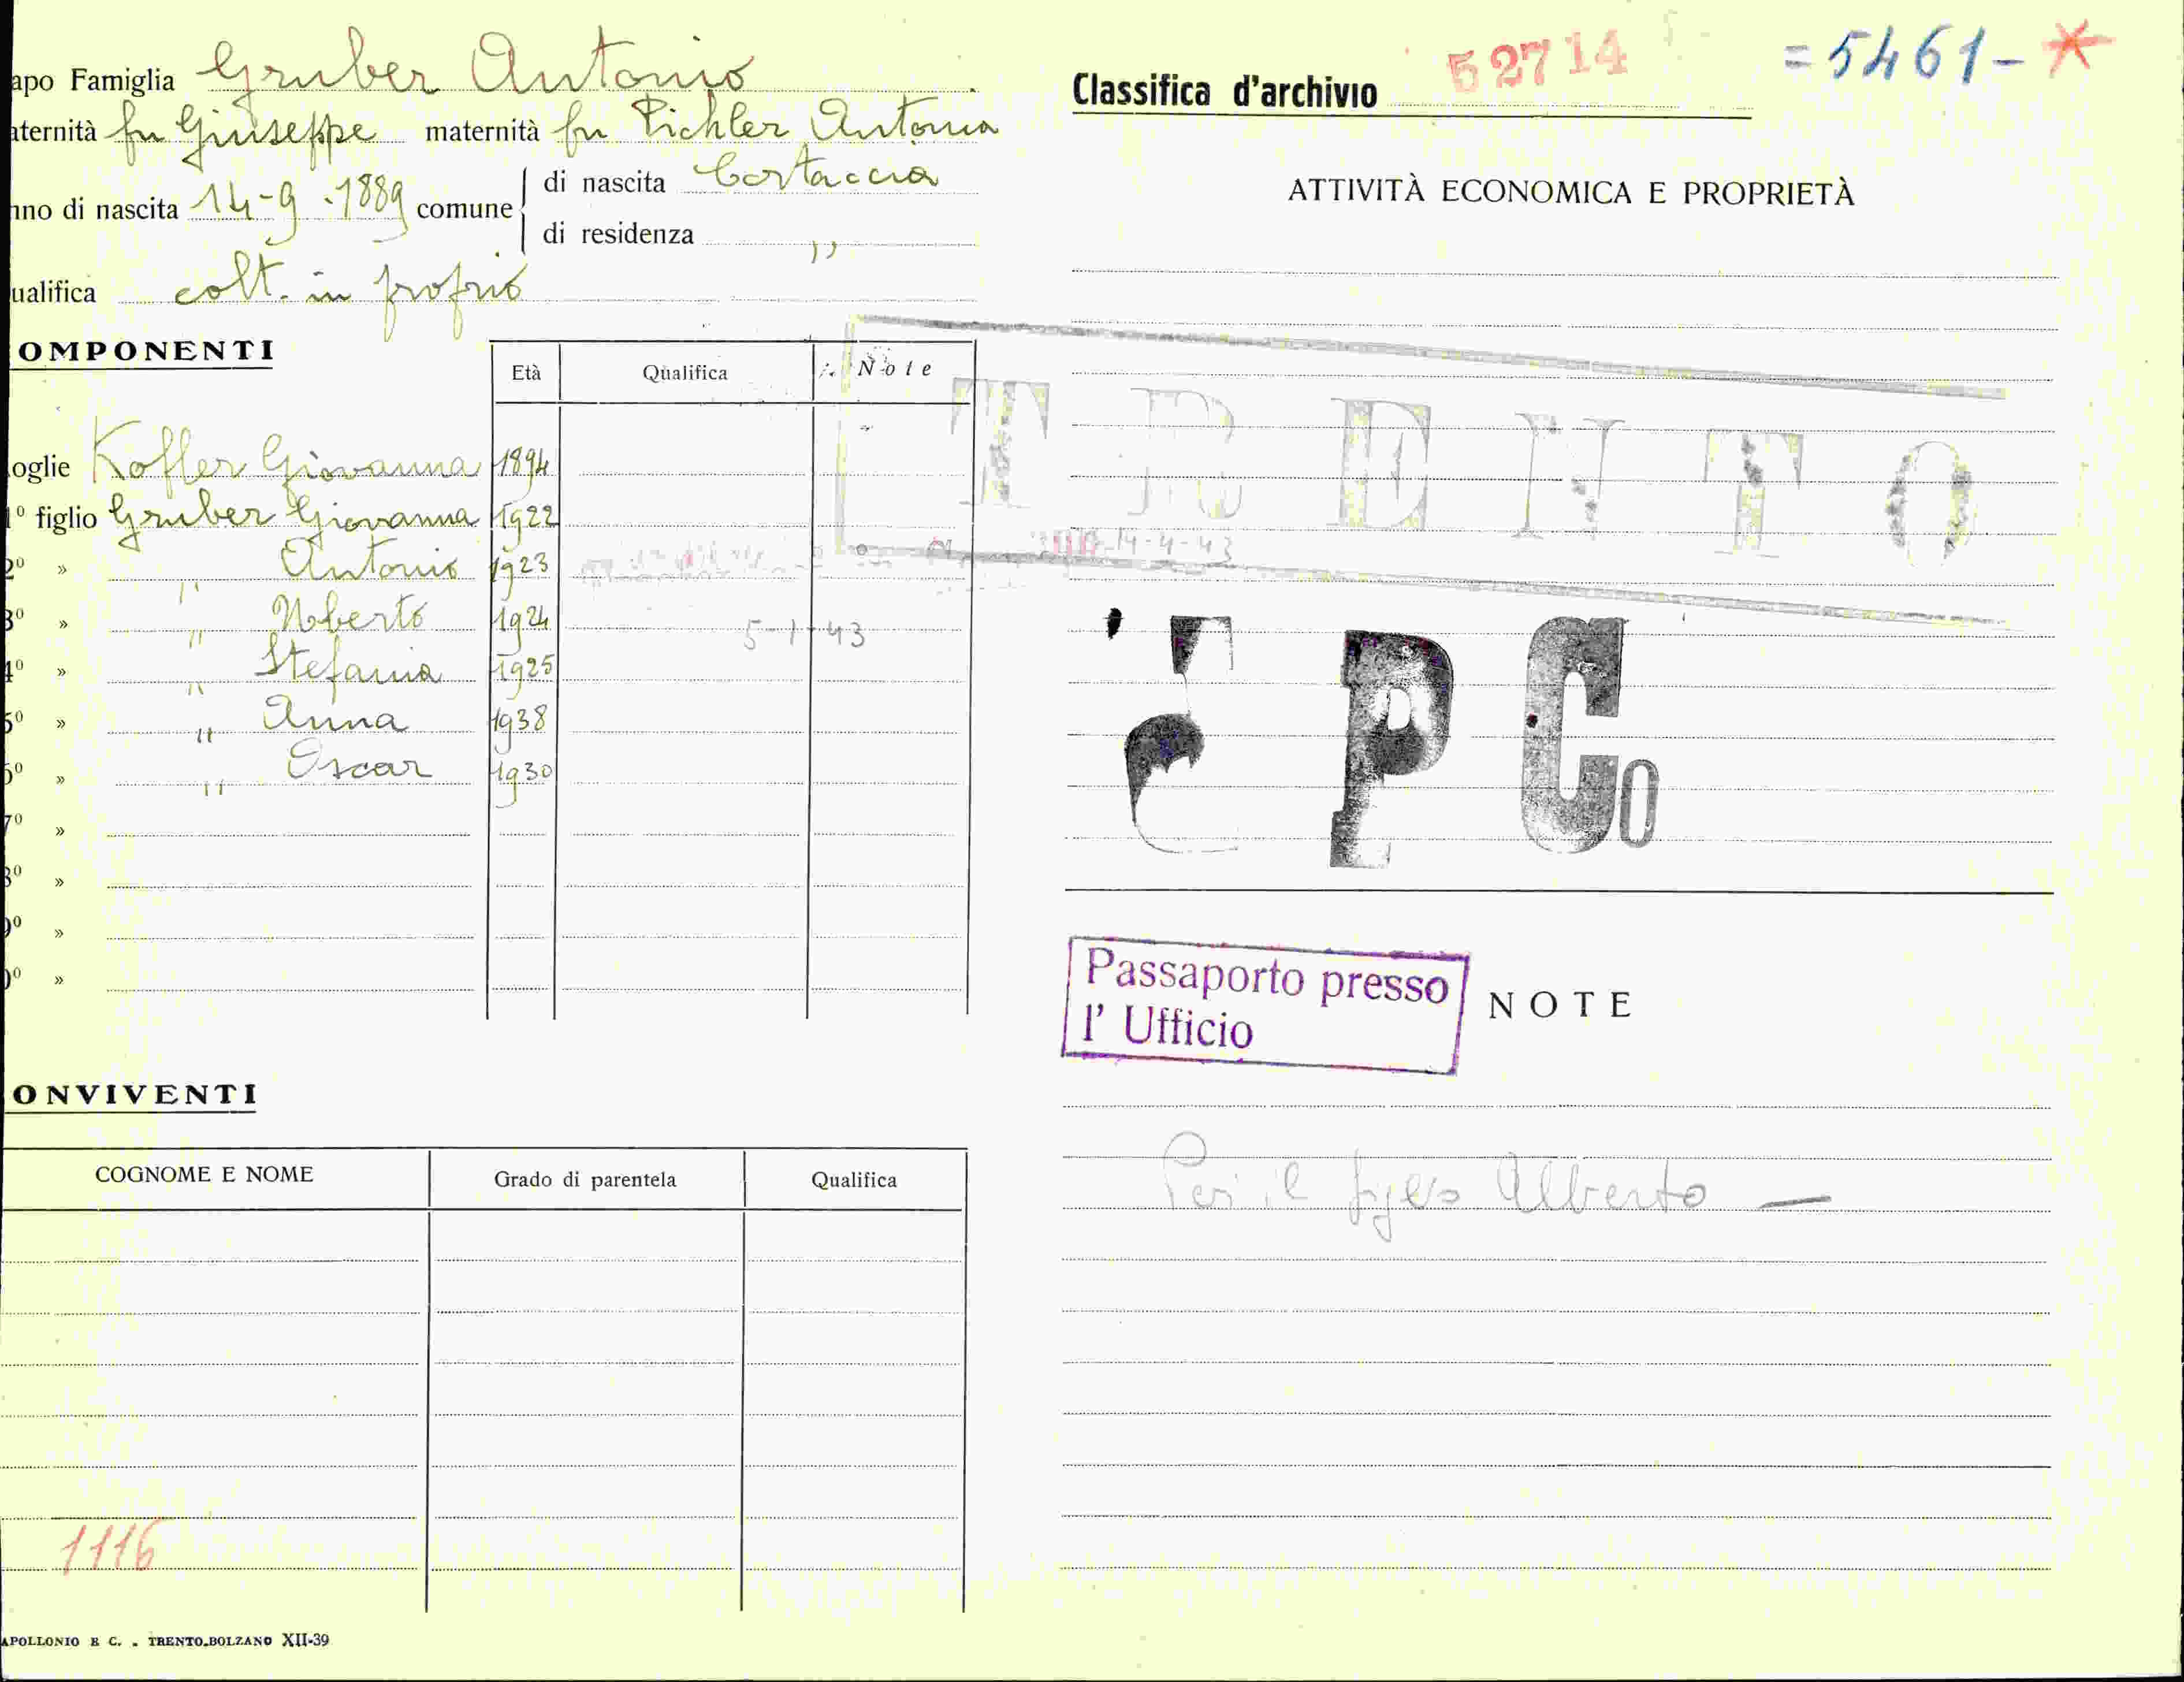 apo Famiglia Gruber Antonio
aternità fu Giuseppe maternità fu Pichler Antonia
nno di nascita 14-9-1889 comune di nascita Cortaccia
di residenza ,,
ualifica colt. in proprio
OMPONENTI
Età Qualifica Note
oglie Kofler Giovanna 1894
1º figlio Gruber Giovanna 1922
2º » ,, Antonio 1923
3º » ,, Norberto 1924
5-1-43
4º » ,, Stefania 1925
5º » ,, Anna 1938
6º » ,, Oscar 1930
7º »
8º »
9º »
0º »
ONVIVENTI
COGNOME E NOME Grado di parentela Qualifica
1116
APOLLONIO E C. - TRENTO-BOLZANO XII-39
Classifica d'archivio 52714 =5461- *
ATTIVITÀ ECONOMICA E PROPRIETÀ
TRENTO
14-4-43
PCo
Passaporto presso
l' Ufficio
NOTE
Per il figlio Alberto —